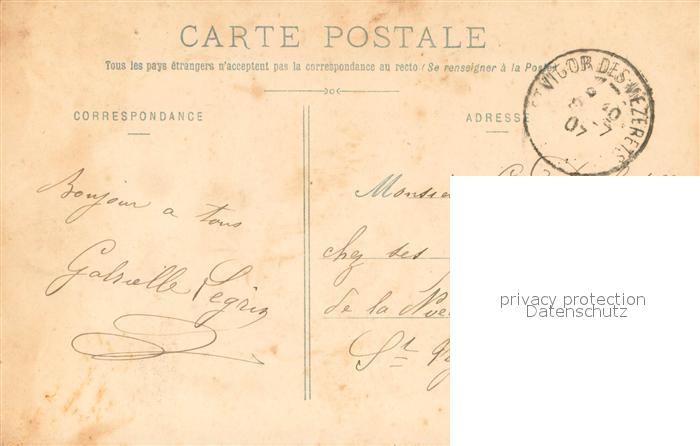 CARTE POSTALE
Tous les pays étrangers n'acceptent pas la correspondance au recto (Se renseigner à la Poste)
CORRESPONDANCE
ADRESSE
ST VIGOR-DES-MÉZERETS
07
Bonjour a tous
Gabrielle Segrin
chez ses
de la
St
privacy protection
Datenschutz